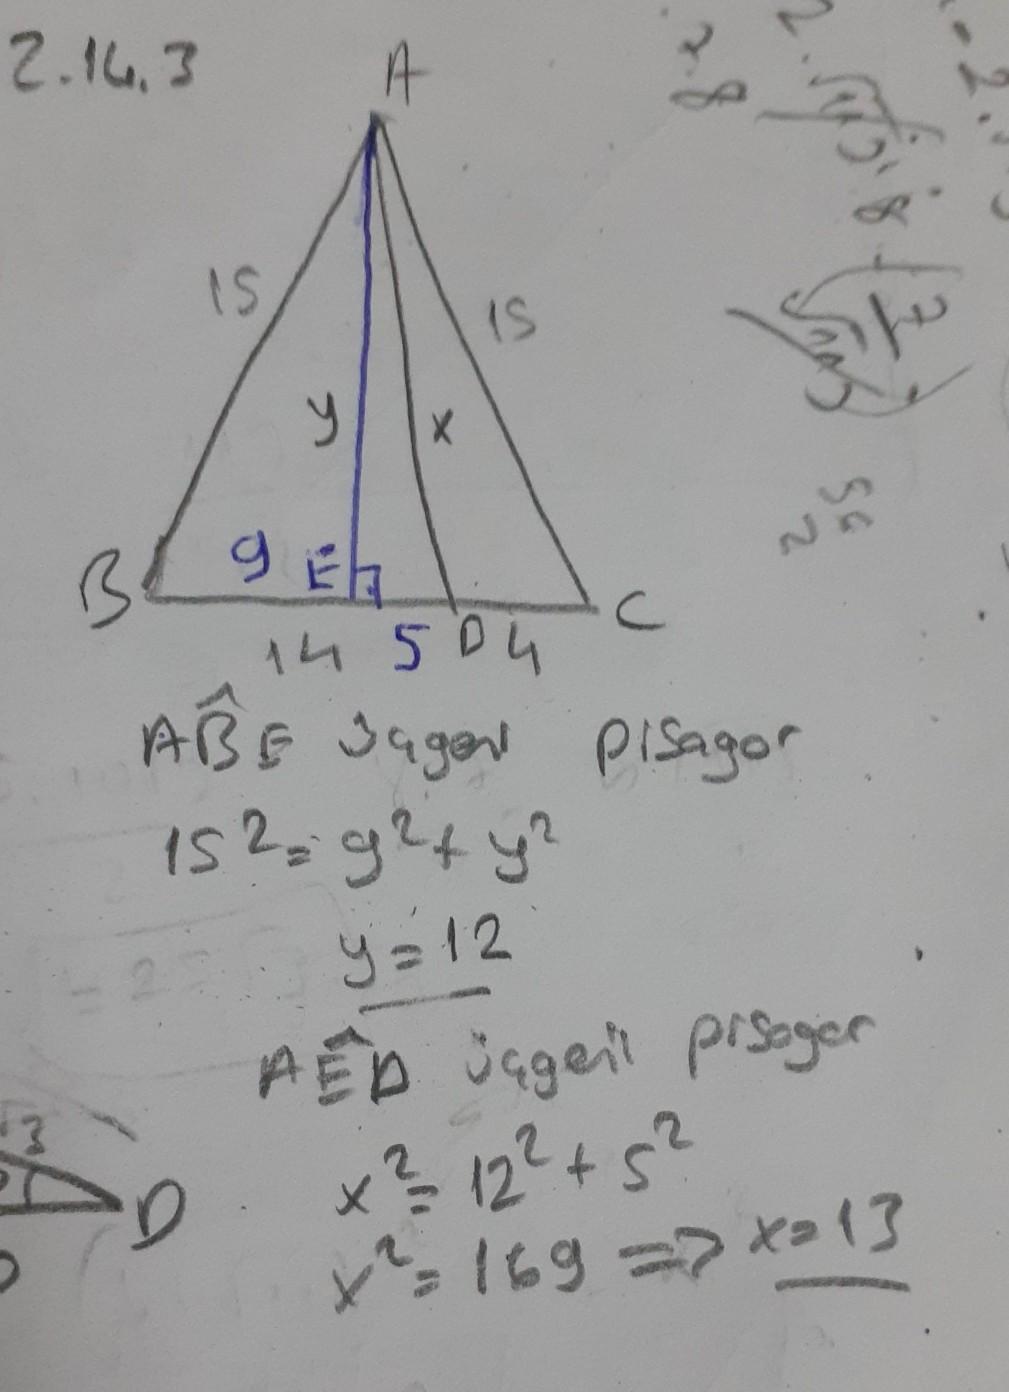 2.14.3
A
15
15
y
x
B
9
E
C
14
5
D
4
AB̂E üçgen pisagor
15² = 9² + y²
y = 12
AÊD üçgen pisagor
x² = 12² + 5²
x² = 169 => x = 13
3
D